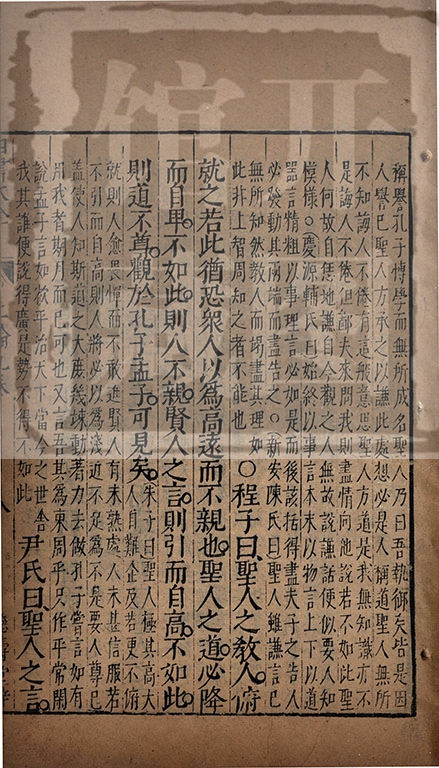 稱譽孔子博學而無所成名聖人乃曰吾執御矣皆是因
人譽已聖人方承之以謙此處想必是人稱道聖人無所
不知誨人不倦有這般意思聖人方道是我無知識亦不
是誨人不倦但鄙夫來問我則盡情向他說若不如此聖
人何故自恁地謙自今觀之人無故說謙話便似要人知
模樣○慶源輔氏曰始終以事言本末以物言上下以道
器言精粗以事理言必如是而後該括得盡夫子之告人
必發動其兩端而盡告之○新安陳氏曰聖人雖謙言已
無所知然教人而竭盡其理如
此非上智周知之者不能也
○程子曰聖人之教人俯
就之若此猶恐衆人以為高遠而不親也聖人之道必降
而自卑不如此則人不親賢人之言則引而自高不如此
則道不尊觀於孔子孟子可見矣
朱子曰聖人極其高大
人自難企及若更不俯
就則人愈畏憚而不敢進賢人有未熟處人未甚信服若
不引而自高則人將必以為淺近不足為不是要人尊已
蓋使人知斯道之大庶幾竦動著力去做孔子嘗言如有
用我者期月而已可也又言吾其為東周乎只作平常閑
說孟子言如欲平治天下當今之世舍
我其誰便說得廣是勢不得不如此
尹氏曰聖人之言